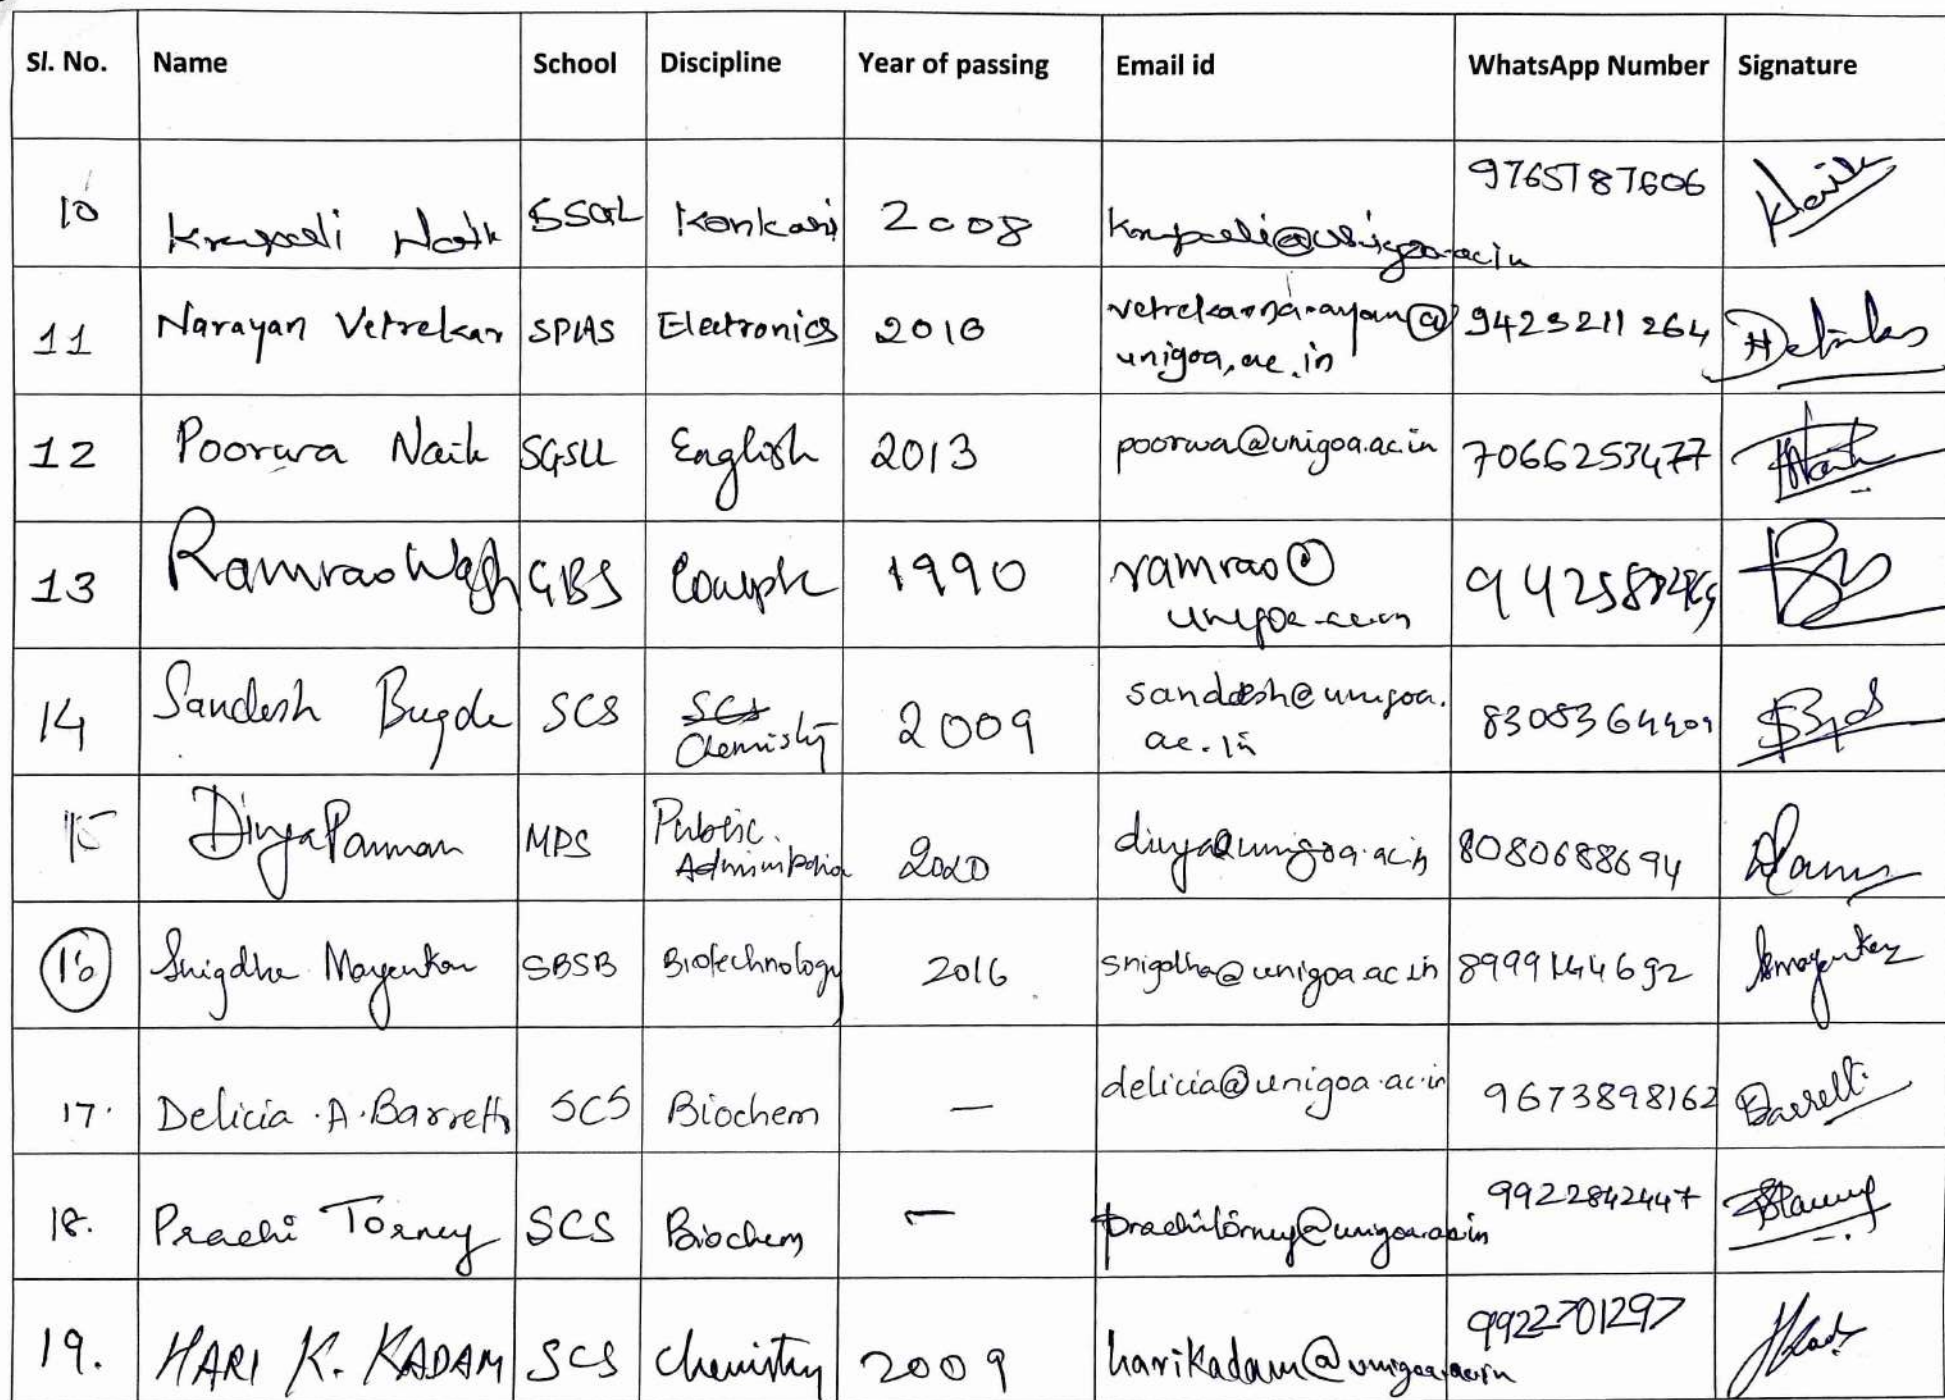 Sl. No. Name School Discipline Year of passing Email id WhatsApp Number Signature
10 Naik Konkani 2008 9765787606
11 Narayan Vetrekar SPAS Electronics 2010 vetrekarnarayan@
unigoa.ac.in 9423211264
12 Poorwa Naik SGSLL English 2013 poorwa@unigoa.ac.in 7066253477
13 Ramrao Wagh GBS 1990 ramrao@
unigoa.ac.in
14 Sandesh Bugde SCS SCS
Chemistry 2009 sandesh@unigoa.
ac.in 8308364409
15 Divya MPS Public
Administration 2020 divya@unigoa.ac.in 8080688694
16 Snigdha Mayenkar SBSB Biotechnology 2016 snigdha@unigoa.ac.in 8999144692
17. Delicia .A. Barretto SCS Biochem — delicia@unigoa.ac.in 9673898162 Barrett
18. Prachi Torney SCS Biochem — prachitorney@unigoa.ac.in 9922842447
19. HARI K. KADAM SCS Chemistry 2009 harikadam@unigoa.ac.in 9922701297